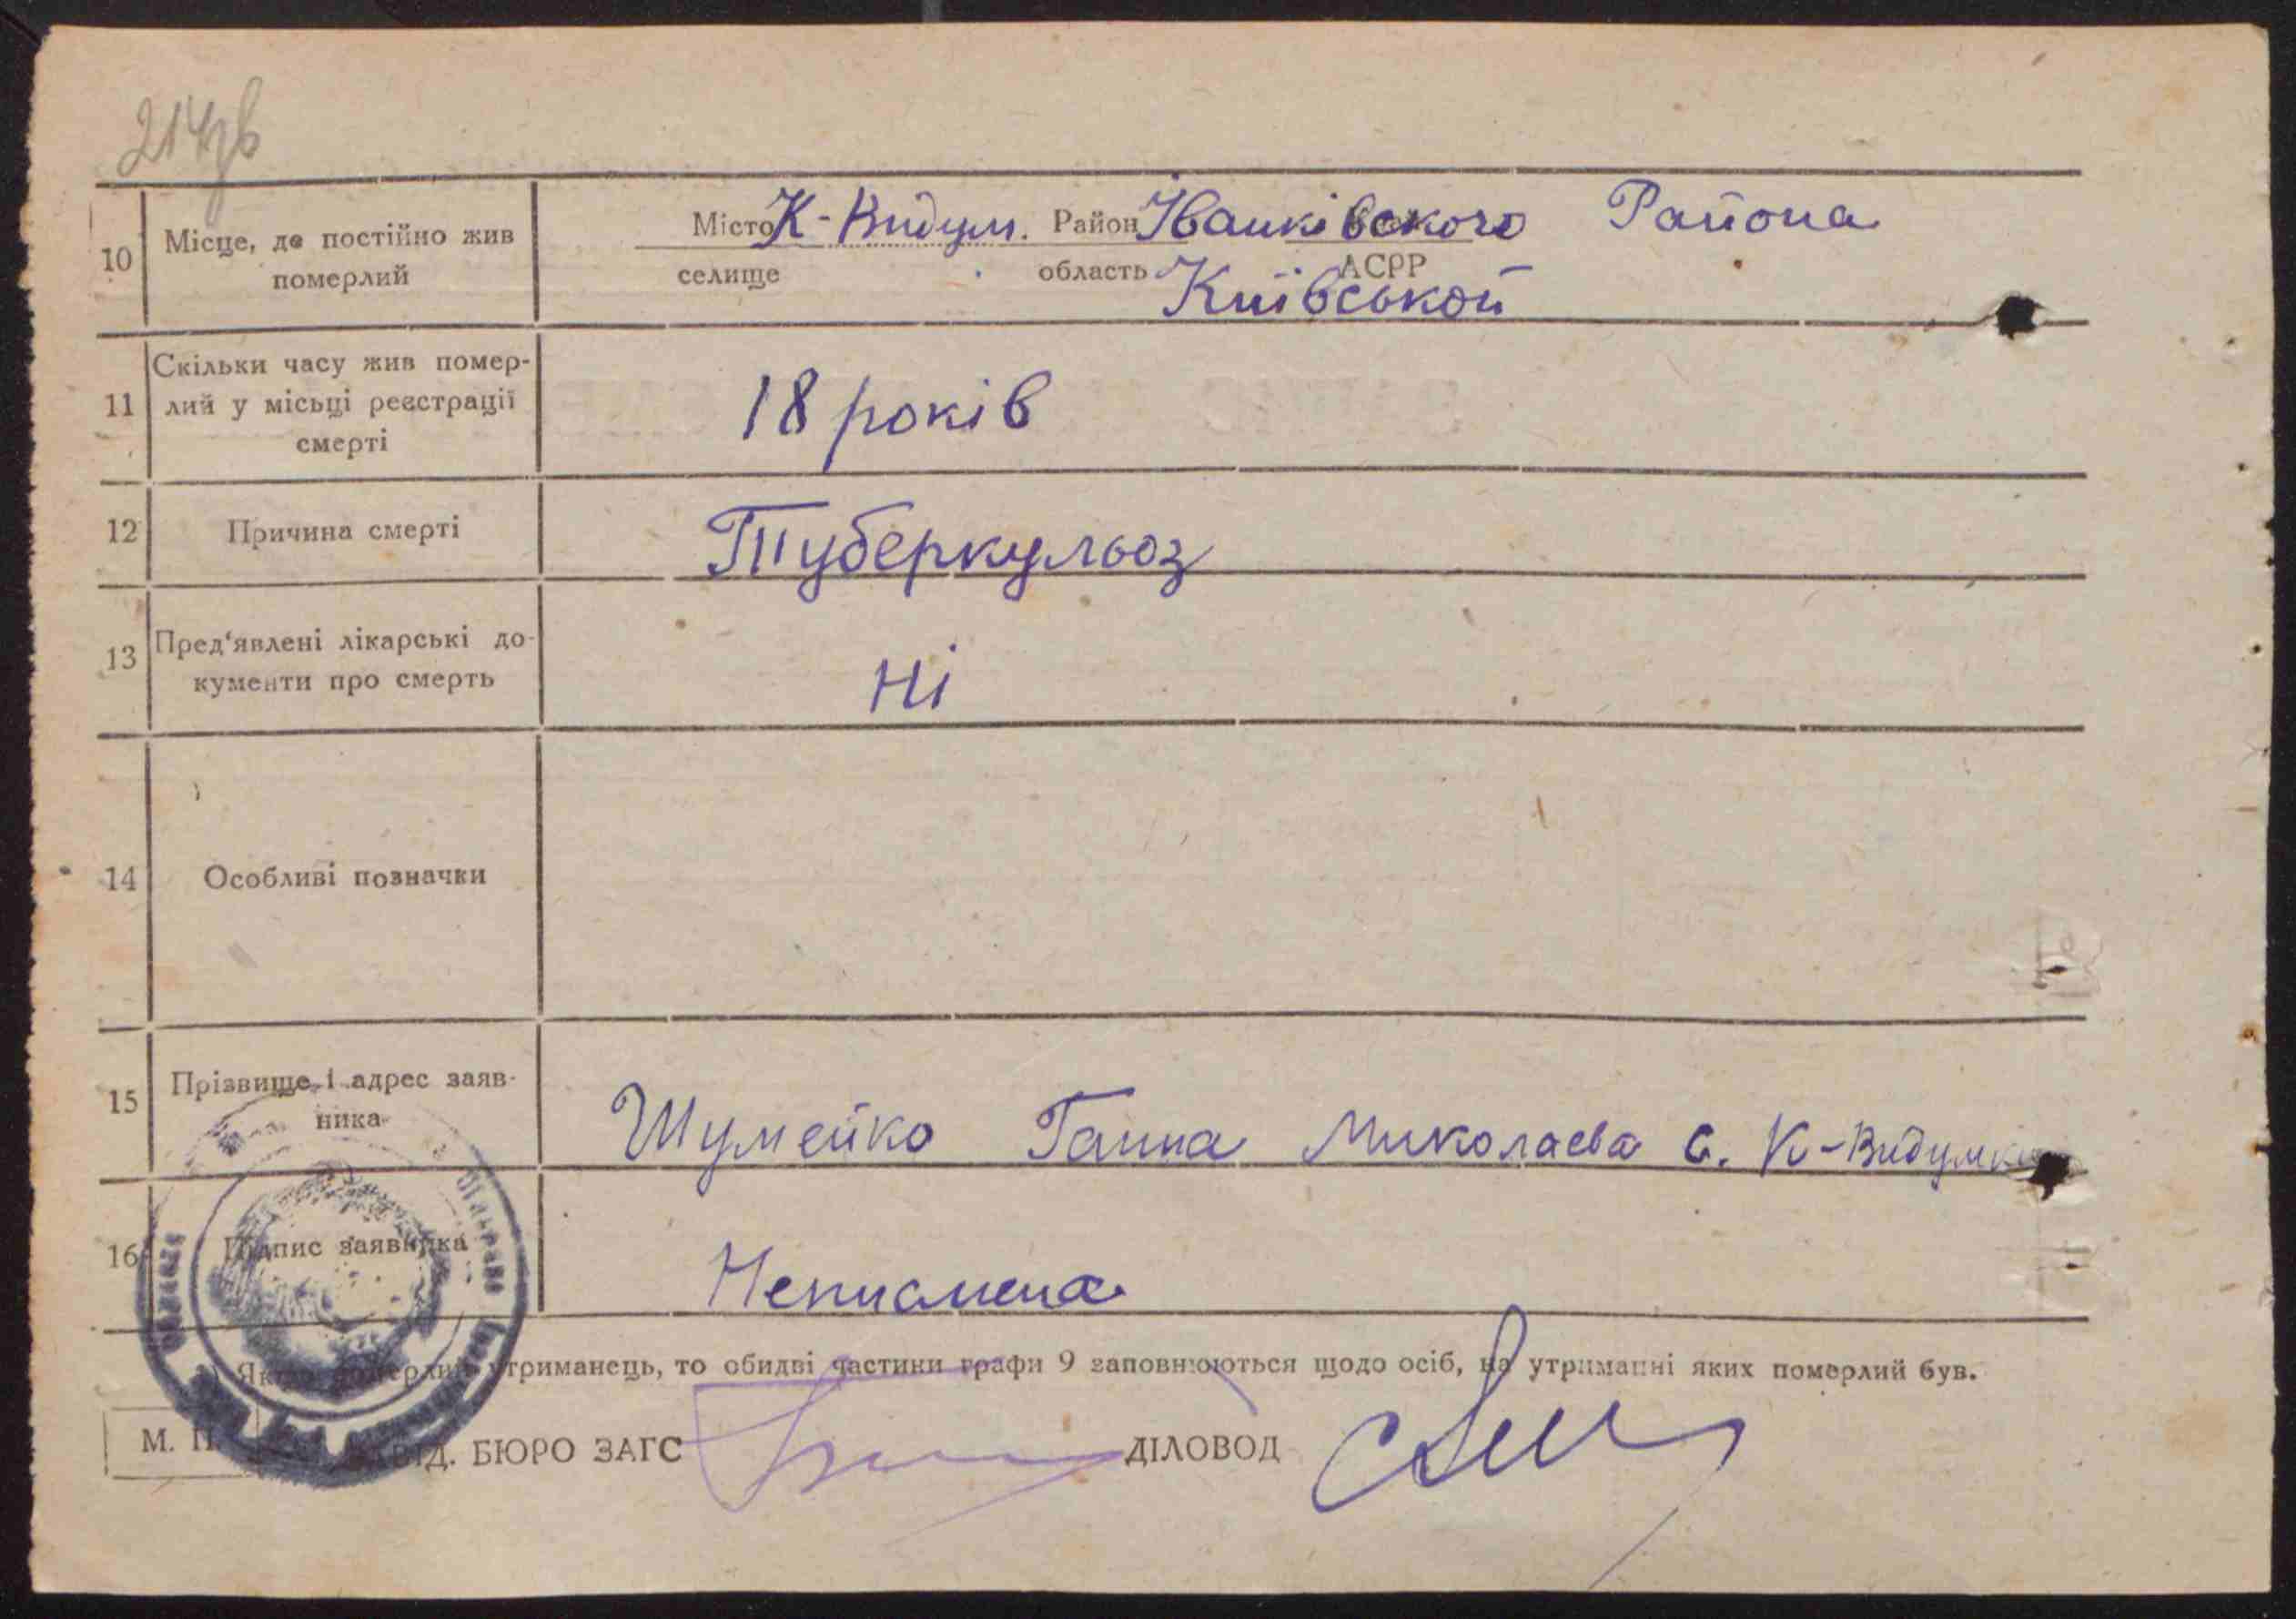 214зв
10 Місце, де постійно жив
померлий
Місто К-Видум. Район Іванківского Району
селище область АСРР
Київськой
11 Скільки часу жив помер-
лий у місьці реєстрації
смерті
18 років
12 Причина смерті
Туберкульоз
13 Пред‘явлені лікарські до-
кументи про смерть
Ні
14 Особливі позначки
15 Прізвище і адрес заяв-
ника
Шумейко Ганна Миколаєва с. К-Видумка
16 Підпис заявника
Неписмена
Якщо померлий утриманець, то обидві частини графи 9 заповнюються щодо осіб, на утриманні яких померлий був.
М. П. ЗАВІД. БЮРО ЗАГС ДІЛОВОД